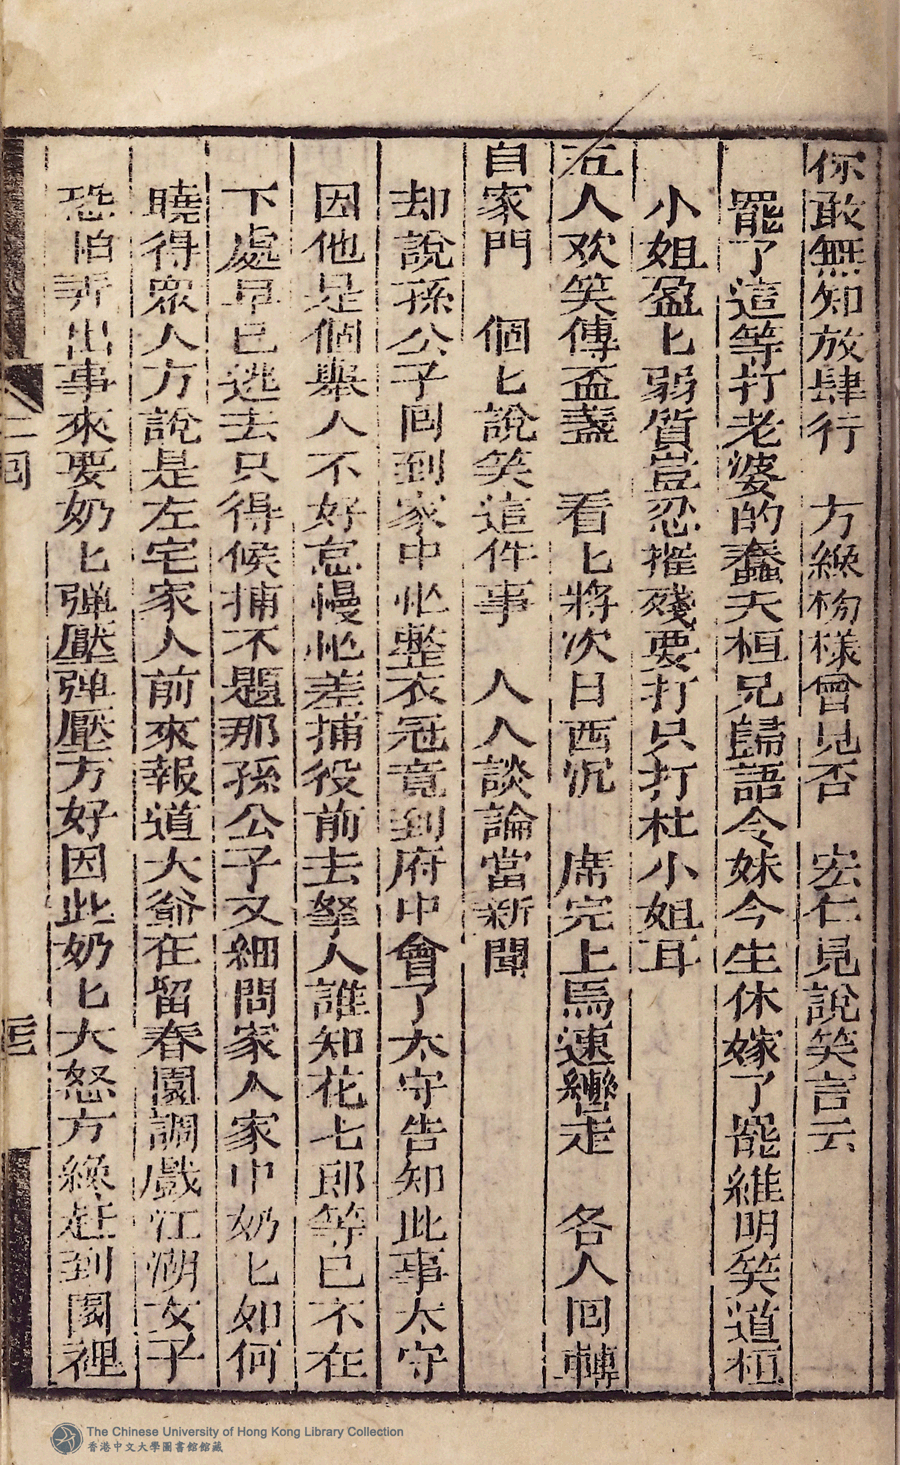 你敢無知放肆行　方纔枴樣曾見否　宏仁見說笑言云
罷了這等打老婆的蠢夫桓兄歸語令妹今生休嫁了罷維明笑道桓
小姐盈匕弱質豈忍摧殘要打只打杜小姐耳
五人欢笑傳盃盞　看匕將次日西沉　席完上馬速轡走　各人回轉
自家門　個匕說笑這件事　人人談論當新聞
却說孫公子囬到家中忙整衣冠竟到府中會了太守告知此事太守
因他是個舉人不好怠慢忙差捕役前去拏人誰知花七郎等已不在
下處早已逃去只得候捕不題那孫公子又細問家人家中奶匕如何
曉得衆人方說是左宅家人前來報道大爺在留春園調戲江湖女子
恐怕弄出事來要奶匕弹壓弹壓方好因此奶匕大怒方纔赶到園裡
二囬
The Chinese University of Hong Kong Library Collection
香港中文大學圖書館館藏